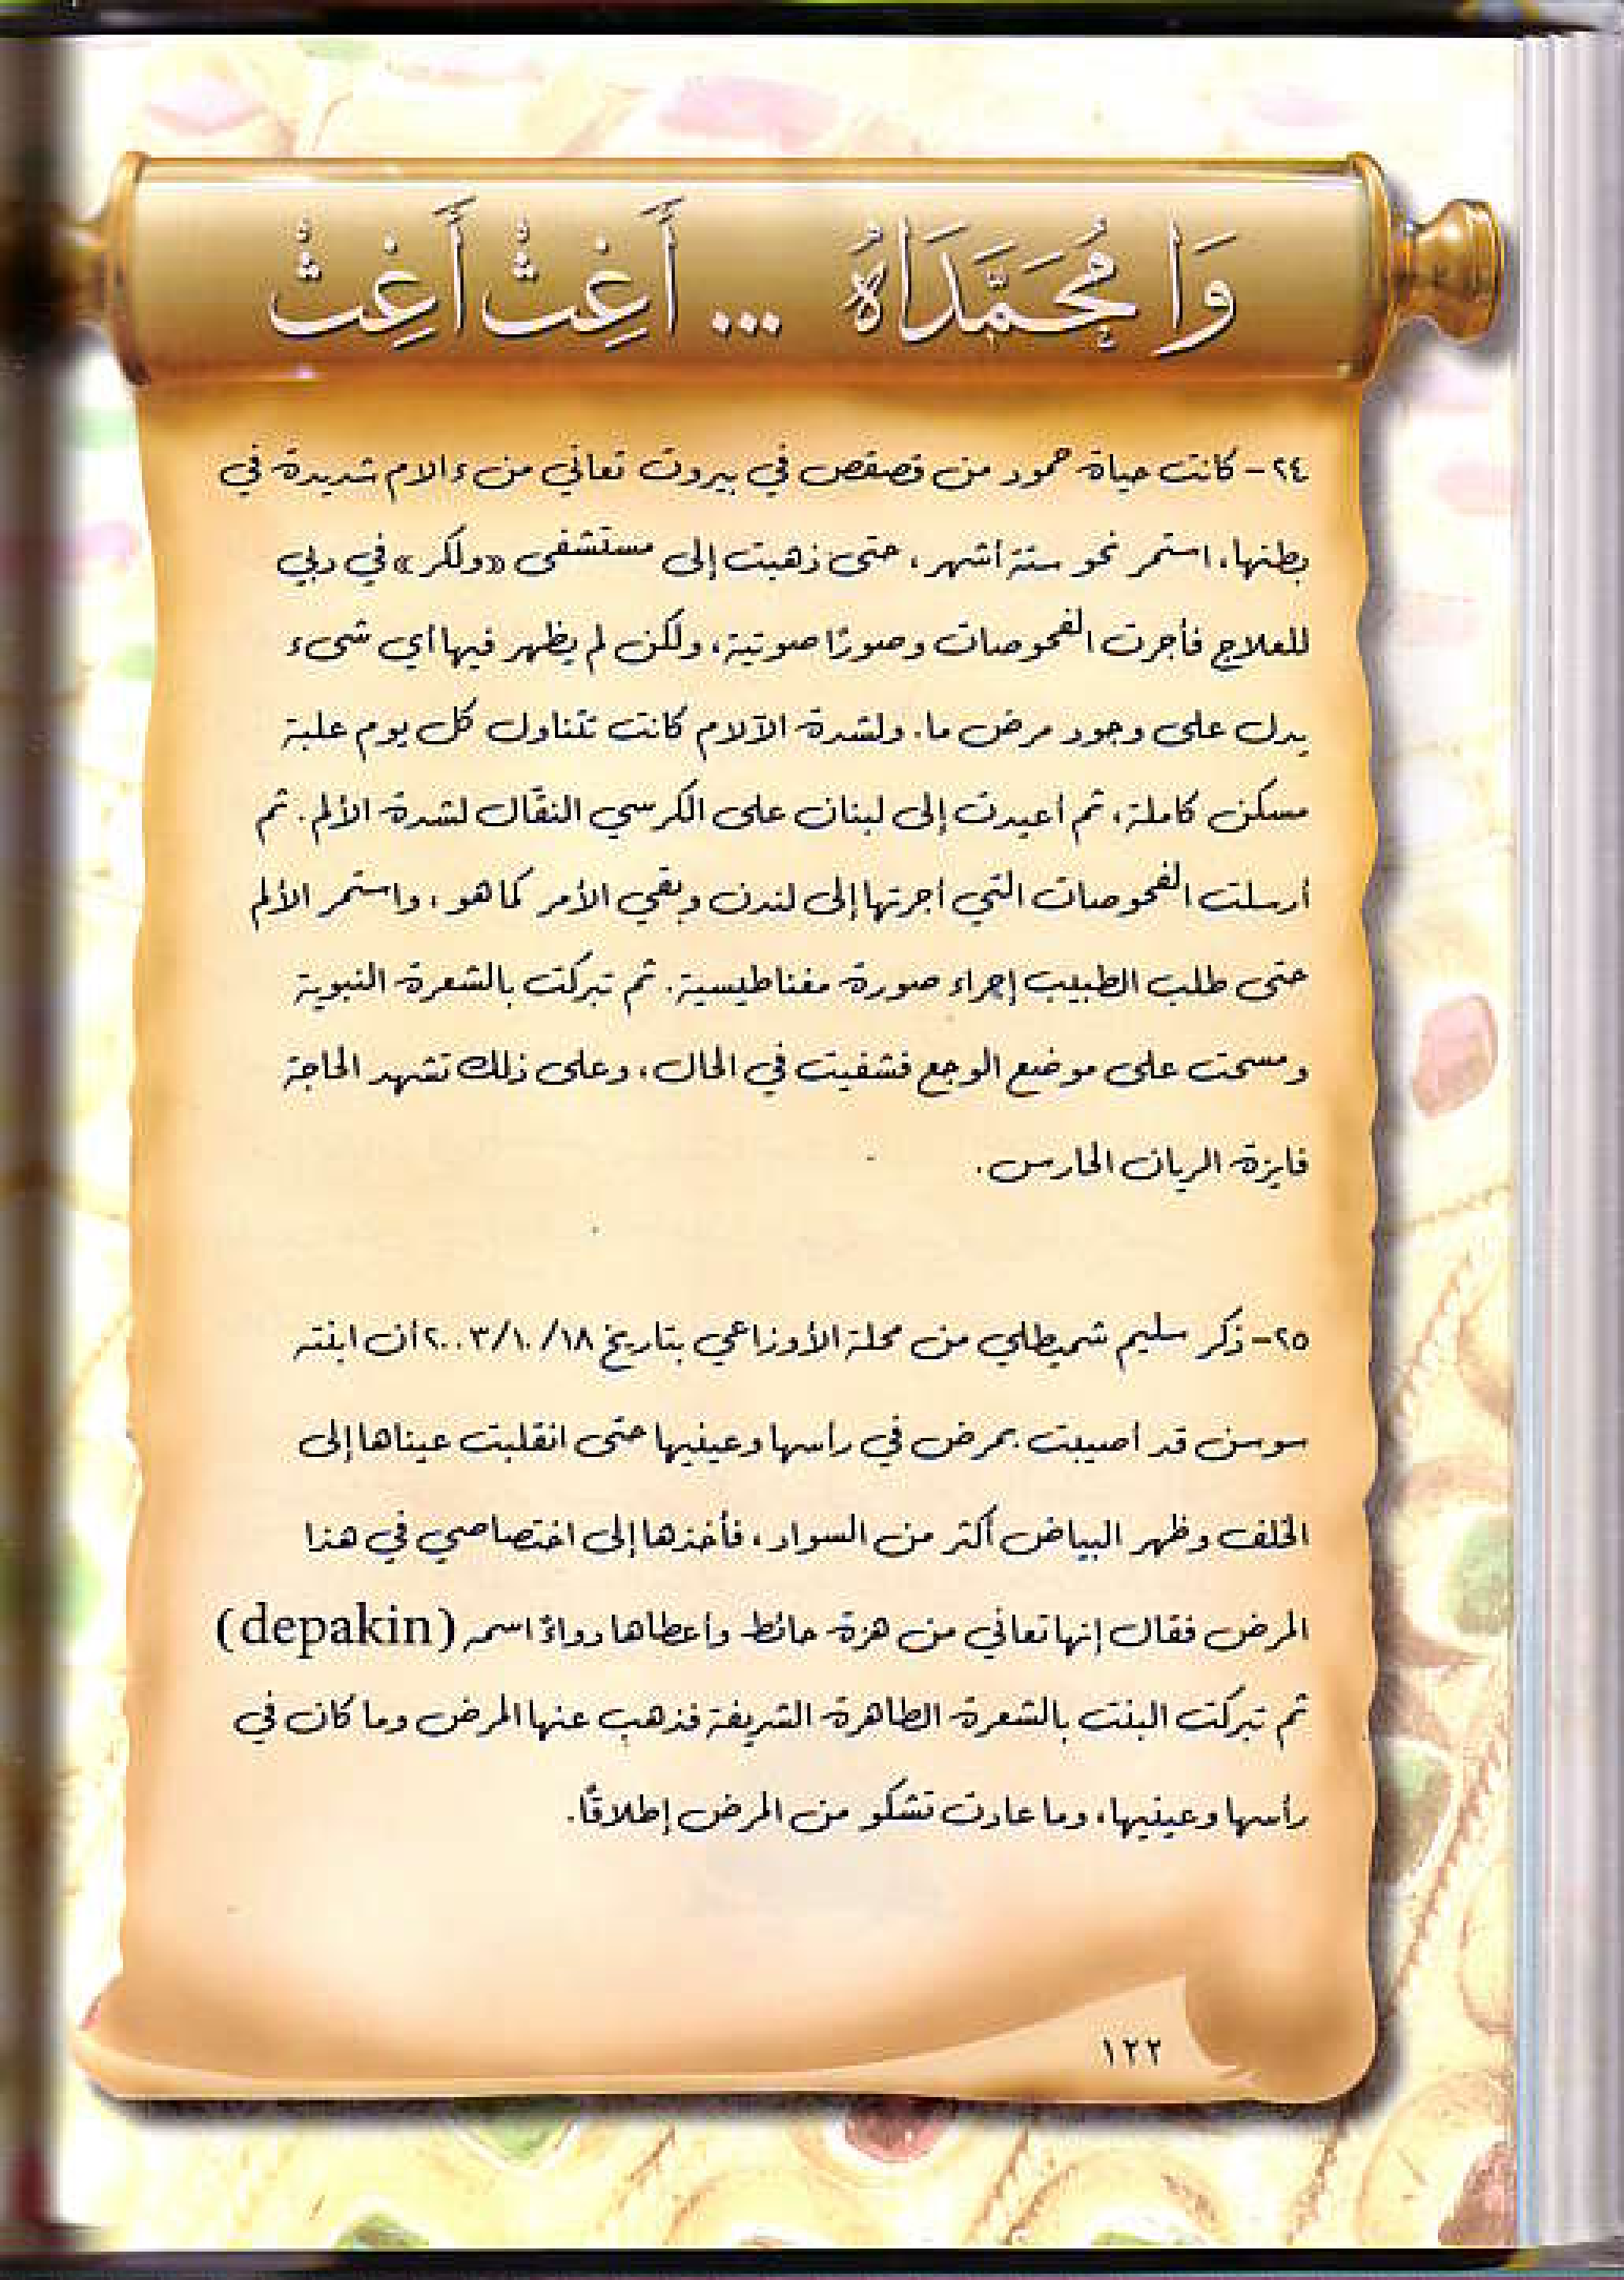 وَا مُحَمَّدَاهُ ... أَغِثْ أَغِثْ
٢٤- كانت حياة حمود من قصقص في بيروت تعاني من ءالام شديدة في
بطنها، استمر نحو ستة أشهر، حتى ذهبت إلى مستشفى «ولكر» في دبي
للعلاج فأجرت الفحوصات وصورًا صوتية، ولكن لم يظهر فيها أي شىء
يدل على وجود مرض ما. ولشدة الآلام كانت تتناول كل يوم علبة
مسكن كاملة، ثم أعيدت إلى لبنان على الكرسي النقّال لشدة الألم. ثم
أرسلت الفحوصات التي أجرتها إلى لندن وبقي الأمر كما هو، واستمر الألم
حتى طلب الطبيب إجراء صورة مغناطيسية. ثم تبركت بالشعرة النبوية
ومسحت على موضع الوجع فشفيت في الحال، وعلى ذلك تشهد الحاجة
فايزة الريان الحارس.
٢٥- ذكر سليم شميطلي من محلة الأوزاعي بتاريخ ٢٠٠٣/١٠/١٨ أن ابنته
سوسن قد أصيبت بمرض في رأسها وعينيها حتى انقلبت عيناها إلى
الخلف وظهر البياض أكثر من السواد، فأخذها إلى اختصاصي في هذا
المرض فقال إنها تعاني من هزة حائط وأعطاها دواءً اسمه (depakin)
ثم تبركت البنت بالشعرة الطاهرة الشريفة فذهب عنها المرض وما كان في
رأسها وعينيها، وما عادت تشكو من المرض إطلاقًا.
١٢٢